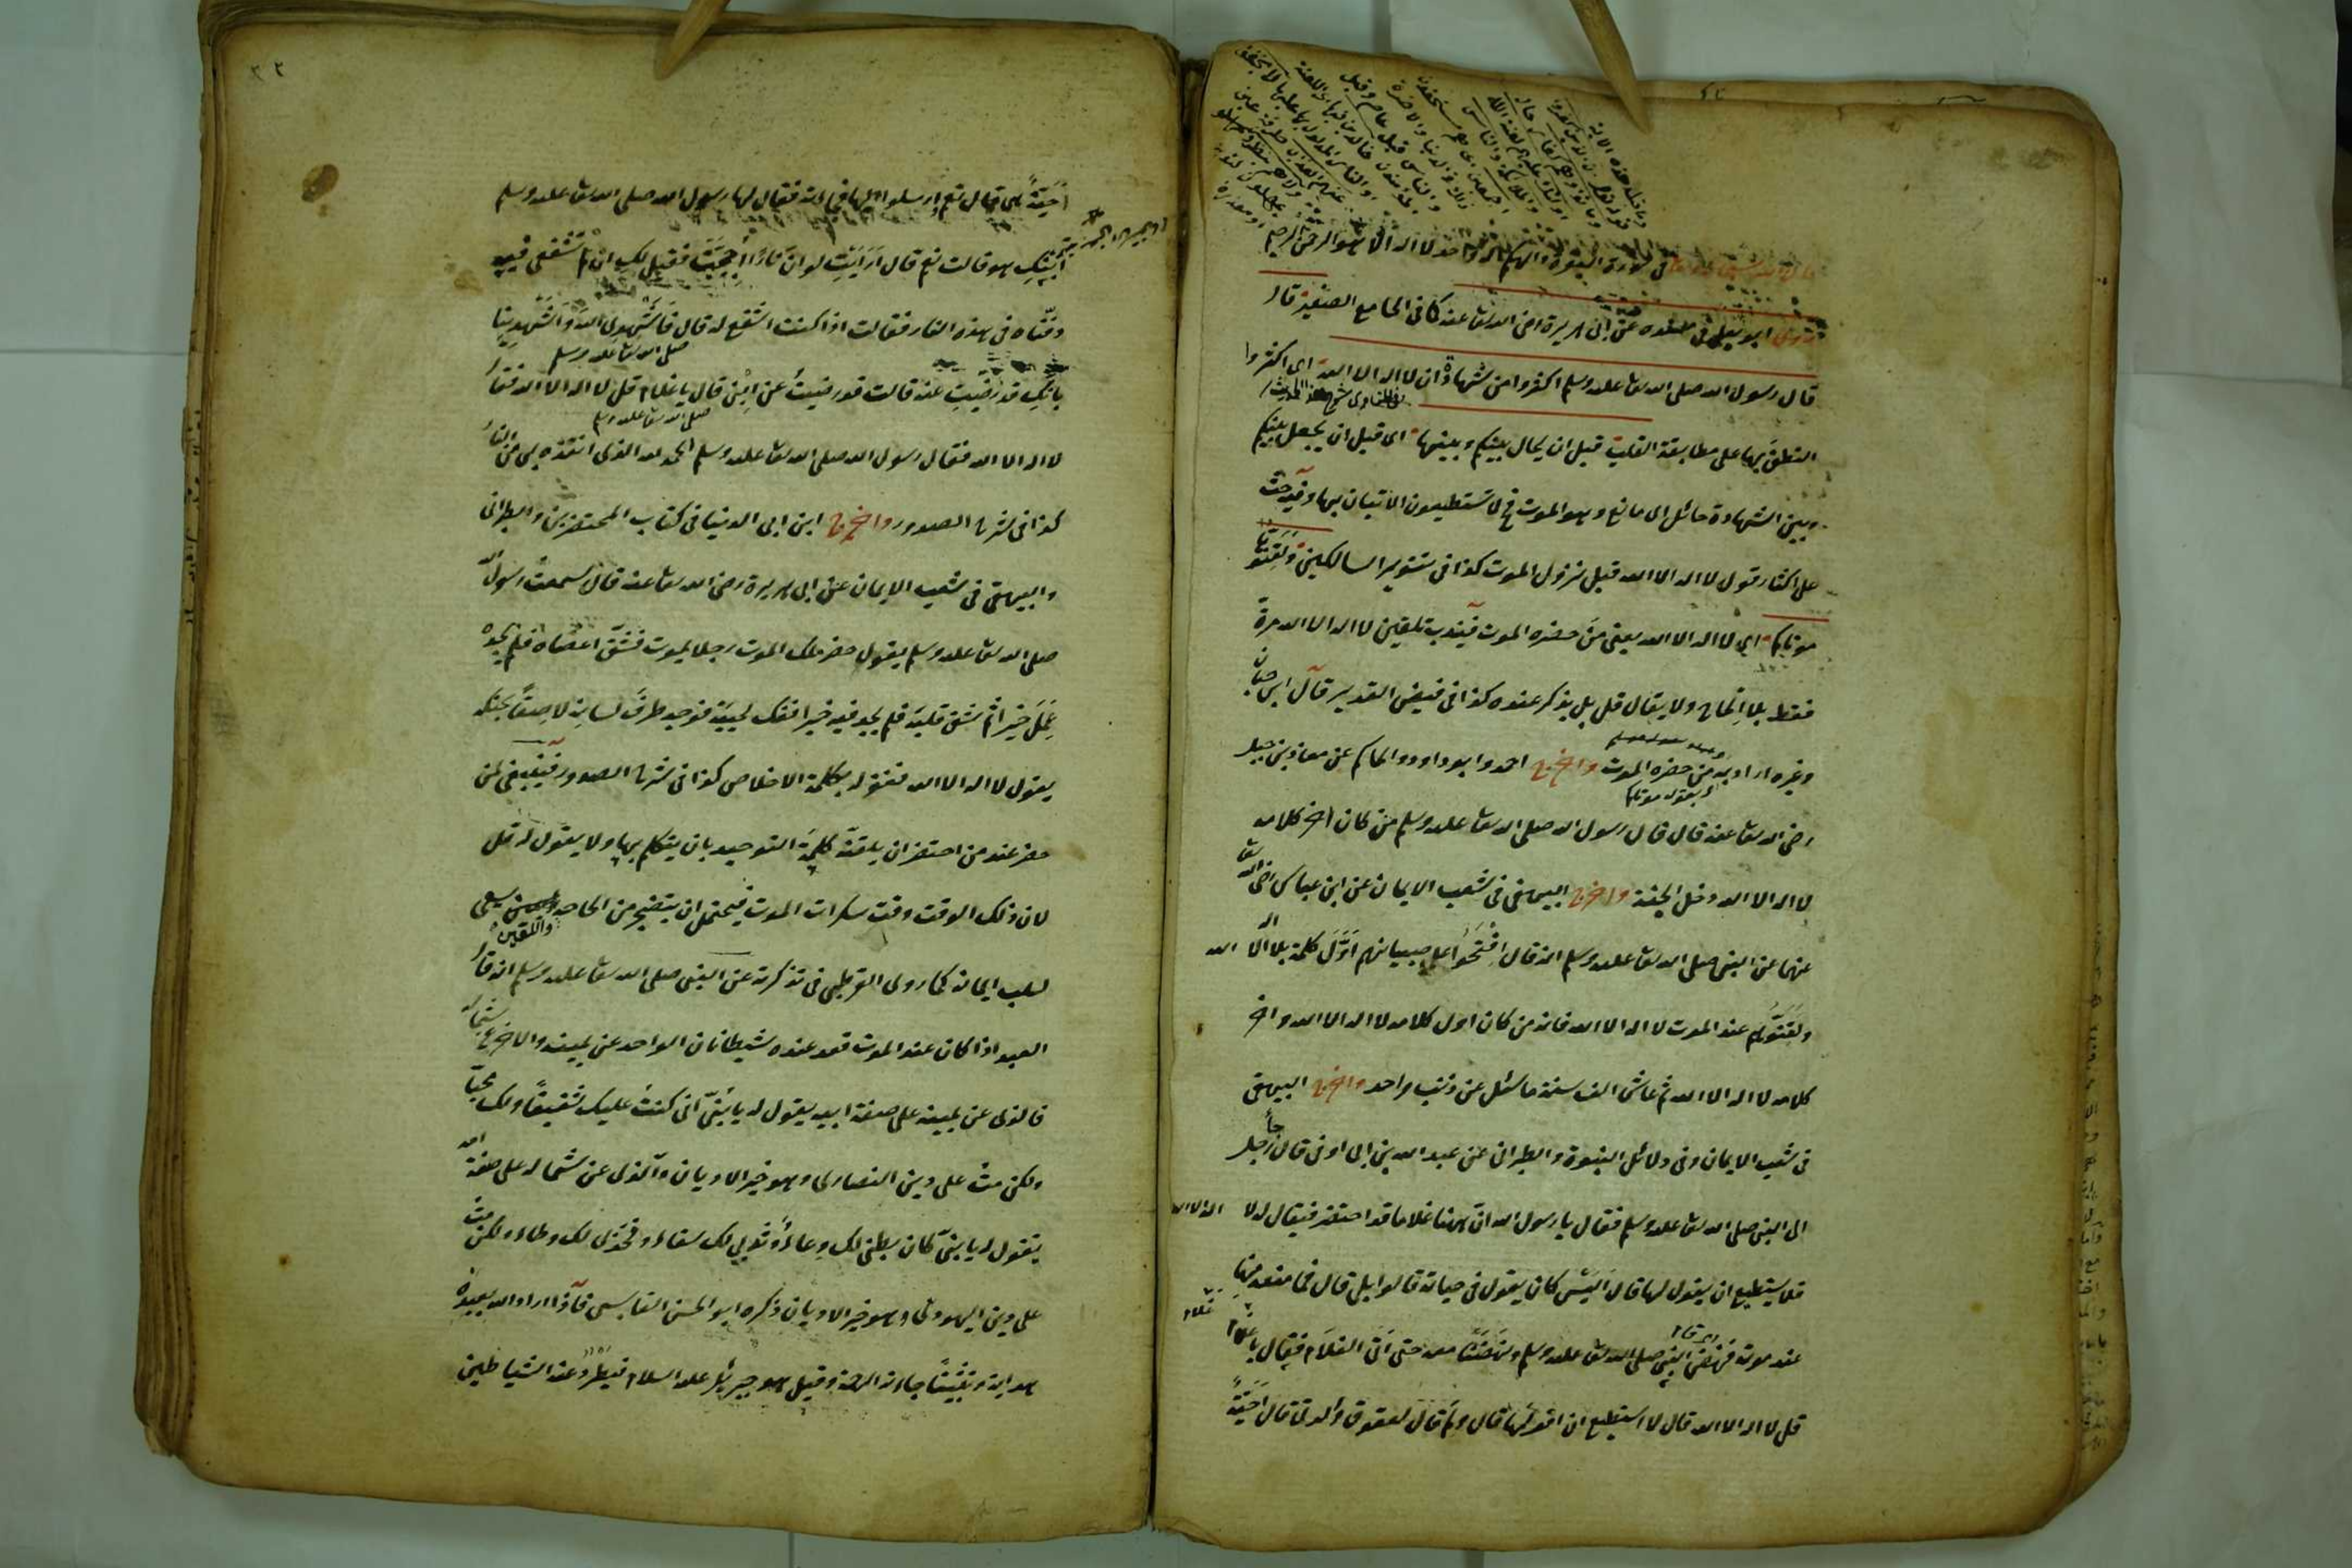 في سورة البقرة والهكم اله واحد لا اله الا هو الرحمن الرحيم
ابو يعلى في مسنده عن ابي هريرة رضي الله تعالى عنه كما في الجامع الصغير قال
قال رسول الله صلى الله تعالى عليه وسلم اكثروا من شهادة ان لا اله الا الله اي اكثروا
النطق بها على مطابقة القلب قبل ان يحال بينكم وبينها اي قبل ان يجعل بينكم
وبين الشهادة حائل اي مانع وهو الموت فح لا تستطيعون الاتيان بها وفيه حث
على اكثار قول لا اله الا الله قبل نزول الموت كذا في تنوير السالكين ولقنوا
موتاكم اي لا اله الا الله يعني من حضره الموت فيندب تلقين لا اله الا الله مرة
فقط بلا الحاح ولا يقال قل بل يذكر عنده كذا في فيض القدير قال ابن حبان
وغيره اراد به من حضره الموت واخرج احمد وابو داود والحاكم عن معاذ بن جبل
بقوله موتاكم
رضي الله تعالى عنه قال قال رسول الله صلى الله تعالى عليه وسلم من كان اخر كلامه
لا اله الا الله دخل الجنة واخرج البيهقي في شعب الايمان عن ابن عباس رضي الله تعا
عنهما عن النبي صلى الله تعالى عليه وسلم انه قال افتحوا على صبيانكم اول كلمة بلا اله الا الله
ولقنوهم عند الموت لا اله الا الله فانه من كان اول كلامه لا اله الا الله واخر
كلامه لا اله الا الله ثم عاش الف سنة ما سئل عن ذنب واحد واخرج البيهقي
في شعب الايمان وفي دلائل النبوة والطبراني عن عبد الله بن ابي اوفى قال جاء رجل
الى النبي صلى الله تعالى عليه وسلم فقال يا رسول الله ان ههنا غلاما قد احتضر فيقال له لا اله الا الله
فلا يستطيع ان يقول لها قال اليس كان يقول في حياته قالوا بلى قال فما منعه منها
عند موته فنهض النبي صلى الله تعالى عليه وسلم ونهضنا معه حتى اتى الغلام فقال يا غلام
قل لا اله الا الله قال لا استطيع ان اقولها قال ولم قال لعقوق والدتي قال احية
احية هي قال نعم ارسلوا اليها فجاءته فقال لها رسول الله صلى الله تعالى عليه وسلم
ابنك هو قالت نعم قال ارايت لو ان نارا اججت فقيل لك ان لم تشفعي فيه
دفناه في هذه النار فقالت اذا كنت اشفع له قال فاشهدي الله واشهدينا
صلى الله تعالى عليه وسلم
بانك قد رضيت عنه قالت قد رضيت عن ابني قال يا غلام قل لا اله الا الله فقال
صلى الله تعالى عليه وسلم
لا اله الا الله فقال رسول الله صلى الله تعالى عليه وسلم الحمد لله الذي انقذه بي من النار
كذا في شرح الصدور واخرج ابن ابي الدنيا في كتاب المحتضرين والطبراني
والبيهقي في شعب الايمان عن ابي هريرة رضي الله تعالى عنه قال سمعت رسول الله
صلى الله تعالى عليه وسلم يقول حضر ملك الموت رجلا يموت فشق اعضاه فلم يجده
عمل خيرا ثم شق قلبه فلم يجد فيه خيرا ففك لحييه فوجد طرف لسانه لاصقا بحنكه
يقول لا اله الا الله فغفر له بكلمة الاخلاص كذا في شرح الصدور فينبغي لمن
حضر عند من احتضر ان يلقنه كلمة التوحيد بان يتكلم بها ولا يقول له قل
لان ذلك الوقت وقت سكرات الموت فيحتمل ان يتضجر من الحاحه يسعى
والتلقين
لسلب ايمانه كما روى القرطبي في تذكرته عن النبي صلى الله تعالى عليه وسلم انه قال
العبد اذا كان عند الموت قعد عنده شيطانان الواحد عن يمينه والاخر عن شماله
فالذي عن يمينه على صفة ابيه يقول له يا بني اني كنت عليك شفيقا ولك محبا
ولكن مت على دين النصارى وهو خير الاديان والذي عن شماله على صفة امه
يقول له يا بني كان بطني لك وعاء وثديي لك سقاء وفخذي لك وطاء ولكن مت
على دين اليهودى وهو خير الاديان ذكره ابو الحسن القابسي فاذا اراد الله بعبده
هداية وتثبيتا جاءته الرحمة وقيل هو جبريل عليه السلام فيطرد عنه الشياطين